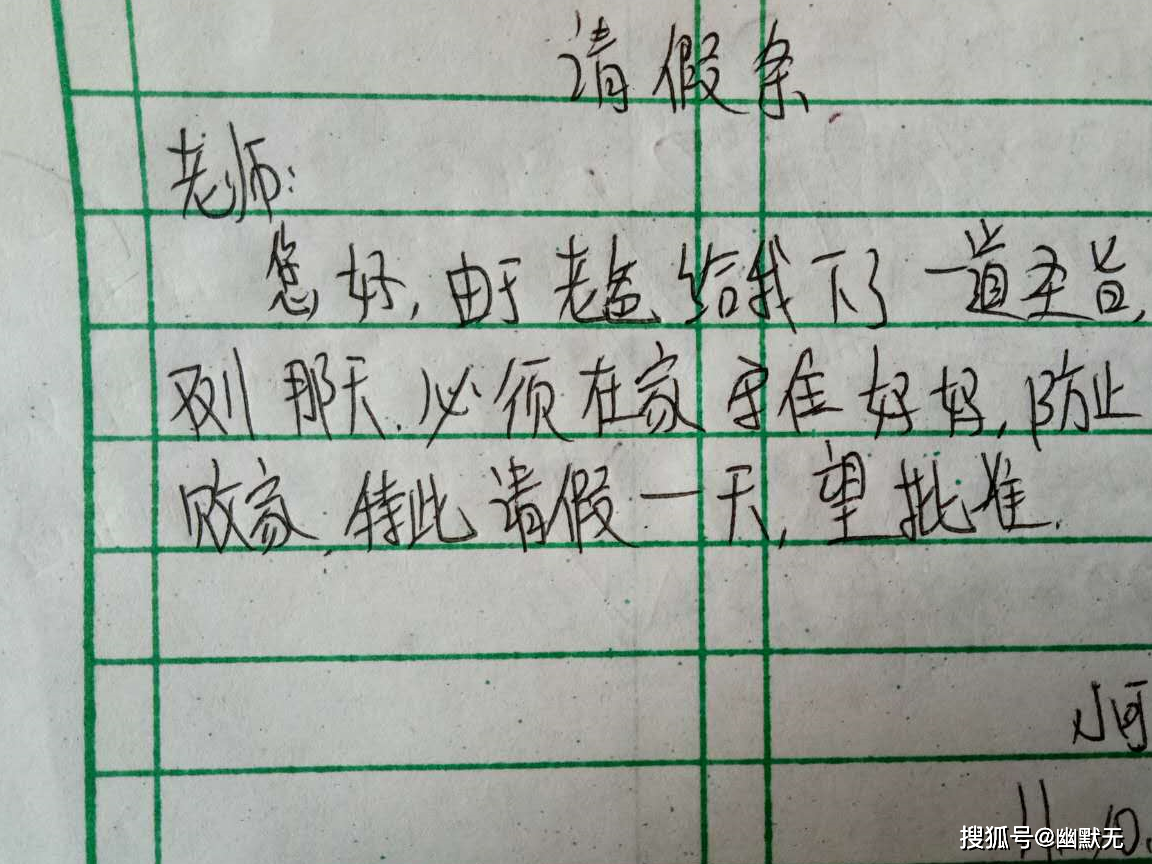 请假条
老师:
您好,由于老给我下了一道圣旨,
双11那天.必须在家守住妈妈,防止
败家,特此请假一天,望批准.
小河
11.10.
搜狐号@幽默无